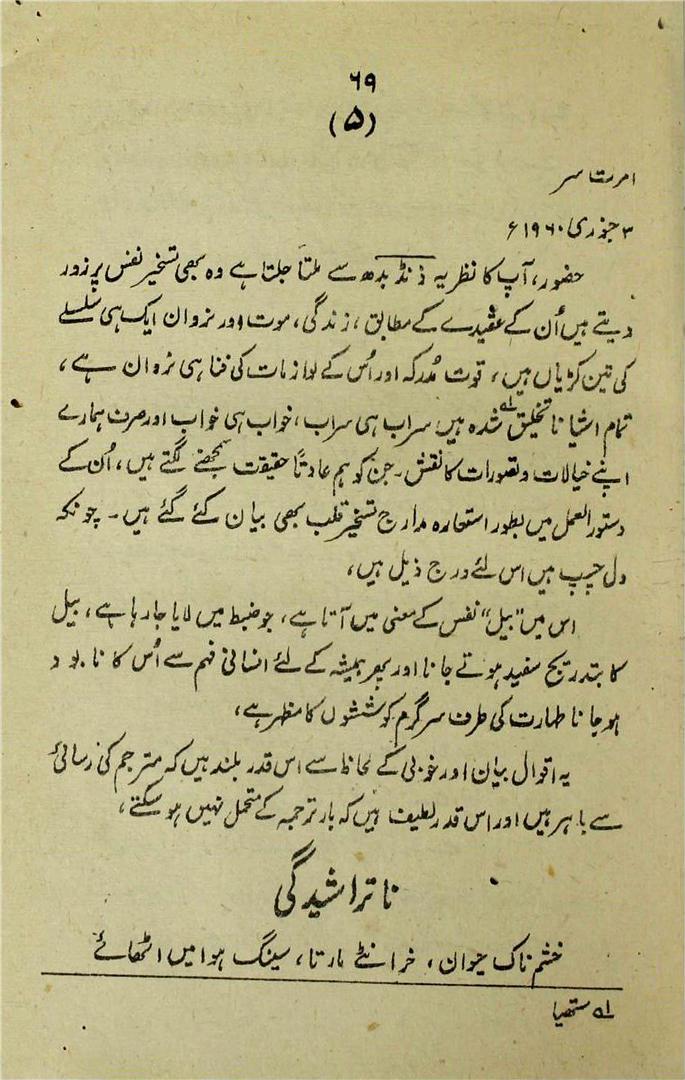 ۶۹
(۵)
امرت سر
۳ جنوری ۱۹۶۰ء
حضور، آپ کا نظریہ ذنڈ بدھ سے ملتا جلتا ہے وہ بھی تسخیر نفس پر زور
دیتے ہیں اُن کے عقیدے کے مطابق، زندگی، موت اور نروان ایک ہی سلسلے
کی تین کڑیاں ہیں، قوت مُدرکہ اور اُس کے لوازمات کی فنا ہی نروان ہے،
تمام اشیا نا تخلیق شدہ ہیں لہ سراب ہی سراب، خواب ہی خواب اور صرف ہمارے
اپنے خیالات و تصورات کا نقش۔ جن کو ہم عادتاً حقیقت سمجھنے لگتے ہیں، اُن کے
دستور العمل میں بطور استعارہ مدارج تسخیر قلب بھی بیان کئے گئے ہیں۔ چونکہ
دل چسپ ہیں اس لئے درج ذیل ہیں،
اس میں "بیل" نفس کے معنی میں آتا ہے، جو ضبط میں لایا جا رہا ہے، بیل
کا بتدریج سفید ہوتے جانا اور پھر ہمیشہ کے لئے انسانی فہم سے اُس کا نابود
ہو جانا طہارت کی طرف سرگرم کوششوں کا مظہر ہے،
یہ اقوال بیان اور خوبی کے لحاظ سے اس قدر بلند ہیں کہ مترجم کی رسائی
سے باہر ہیں اور اس قدر لطیف ہیں کہ بار ترجمہ کے متحمل نہیں ہو سکتے،
ناتراشیدگی
خشم ناک حیوان، خرانٹے مارتا، سینگ ہوا میں اٹھائے
لہ متھیا